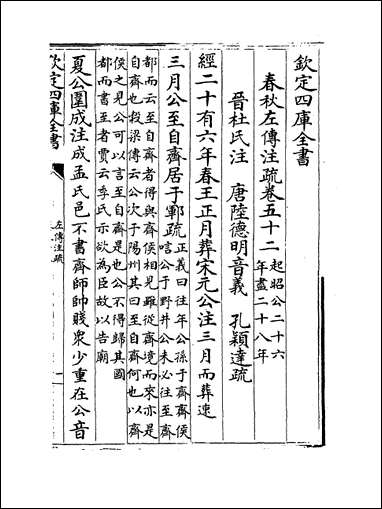 欽定四庫全書
春秋左傳注疏卷五十二起昭公二十六
年盡二十八年
晉杜氏注 唐陸德明音義 孔穎達疏
經二十有六年春王正月葬宋元公注三月而葬速
三月公至自齊居于鄆疏正義曰往年公孫于齊齊侯
唁公于野井公未必往至齊
都而云至自齊者得與齊侯相見雖從齊境而來亦是
自齊也穀梁傳云公次于陽州其曰至自齊何也以齊
侯之見公可以言至自齊是也公不得歸其國
都而書至者賈云季氏示欲為臣故以告廟
夏公圍成注成孟氏邑不書齊師帥賤衆少重在公音
欽定四庫全書
左傳注疏
一